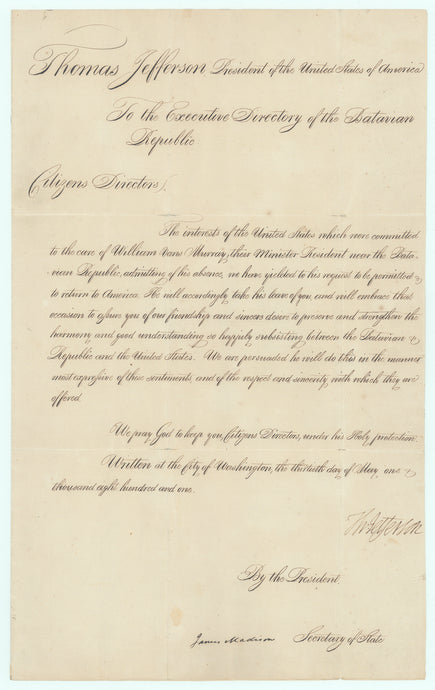 Thomas Jefferson President of the United States of America
To the Executive Directory of the Batavian
Republic.
Citizens Directors,
The interests of the United States which were committed
to the care of William Vans Murray, their Minister Resident near the Bata-
vian Republic, admitting of his absence, we have yielded to his request to be permitted
to return to America. He will accordingly take his leave of you, and will embrace that
occasion to assure you of our friendship and sincere desire to preserve and strengthen the
harmony and good understanding so happily subsisting between the Batavian
Republic and the United States. We are persuaded he will do this in the manner
most expressive of these sentiments, and of the respect and sincerity with which they are
offered.
We pray God to keep you, Citizens Directors, under his Holy protection.
Written at the City of Washington, the thirtieth day of May, one
thousand eight hundred and one.
Th: Jefferson
By the President
James Madison Secretary of State